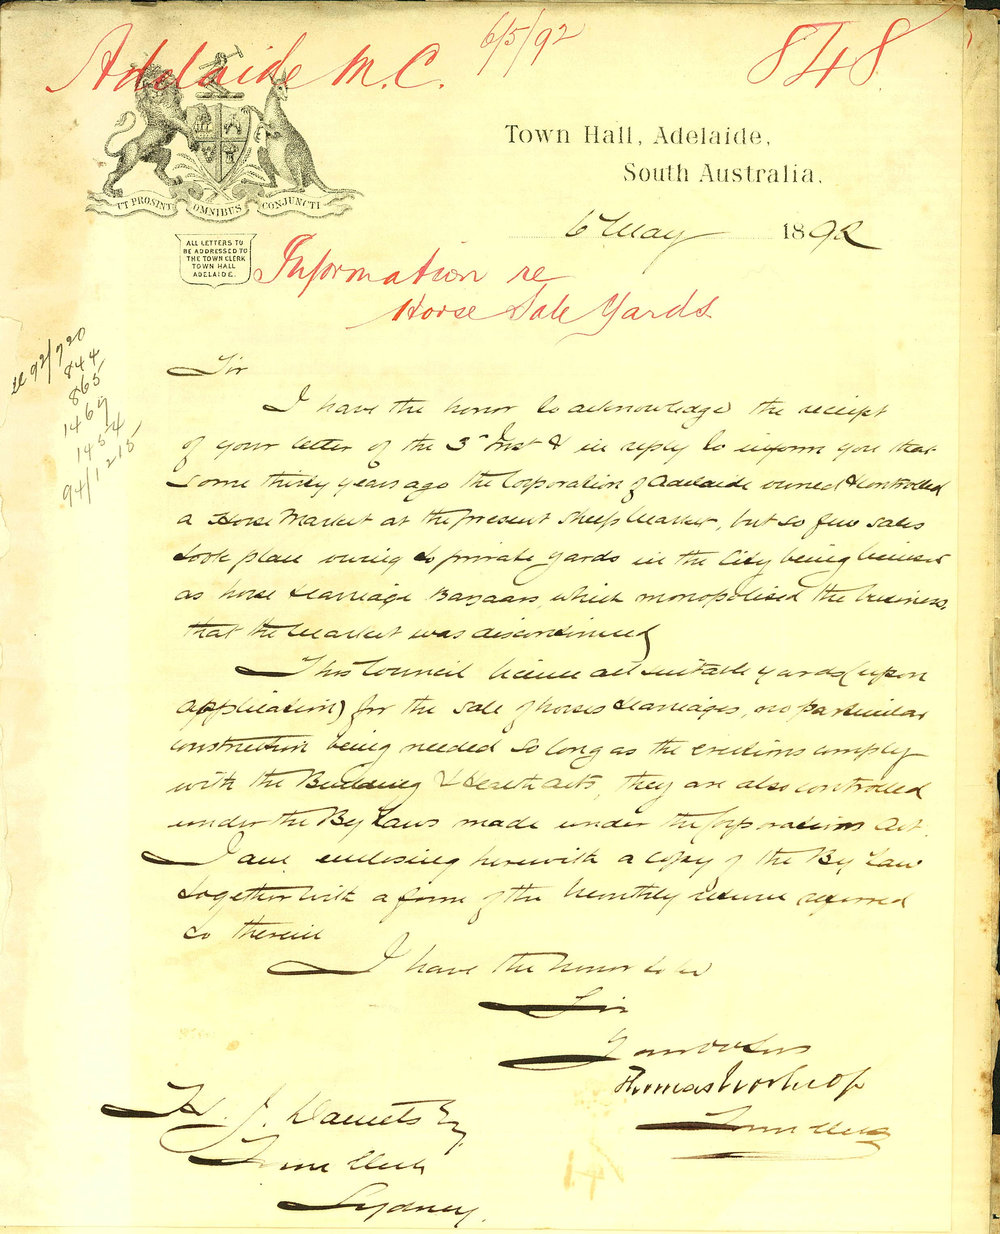 Adelaide M.C.
6/5/92
848
Town Hall, Adelaide,
South Australia.
UT PROSINT OMNIBUS CONJUNCTI
6 May 1892
ALL LETTERS TO
BE ADDRESSED TO
THE TOWN CLERK
TOWN HALL
ADELAIDE.
Information re
Horse Sale Yards
92/720
844
865
1467
1454
94/1215
Sir
I have the honor to acknowledge the receipt
of your letter of the 3rd Inst & in reply to inform you that
some thirty years ago the Corporation of Adelaide owned & controlled
a Horse Market at the present Sheep Market, but so few sales
took place owing to private yards in the City being licensed
as horse & carriage Bazaars, which monopolised the business,
that the Market was discontinued
This Council license all suitable yards (upon
application) for the sale of horses & carriages, no particular
construction being needed so long as the erections comply
with the Building & Health Acts, they are also controlled
under the By Laws made under the Corporations Act.
I am enclosing herewith a copy of the By Law
together with a form of the Monthly return referred
to therein
I have the honor to be
Sir
Your ob Serv
Thomas Worsnop
Town Clerk
H. J. Daniels Esq
Town Clerk
Sydney.
41